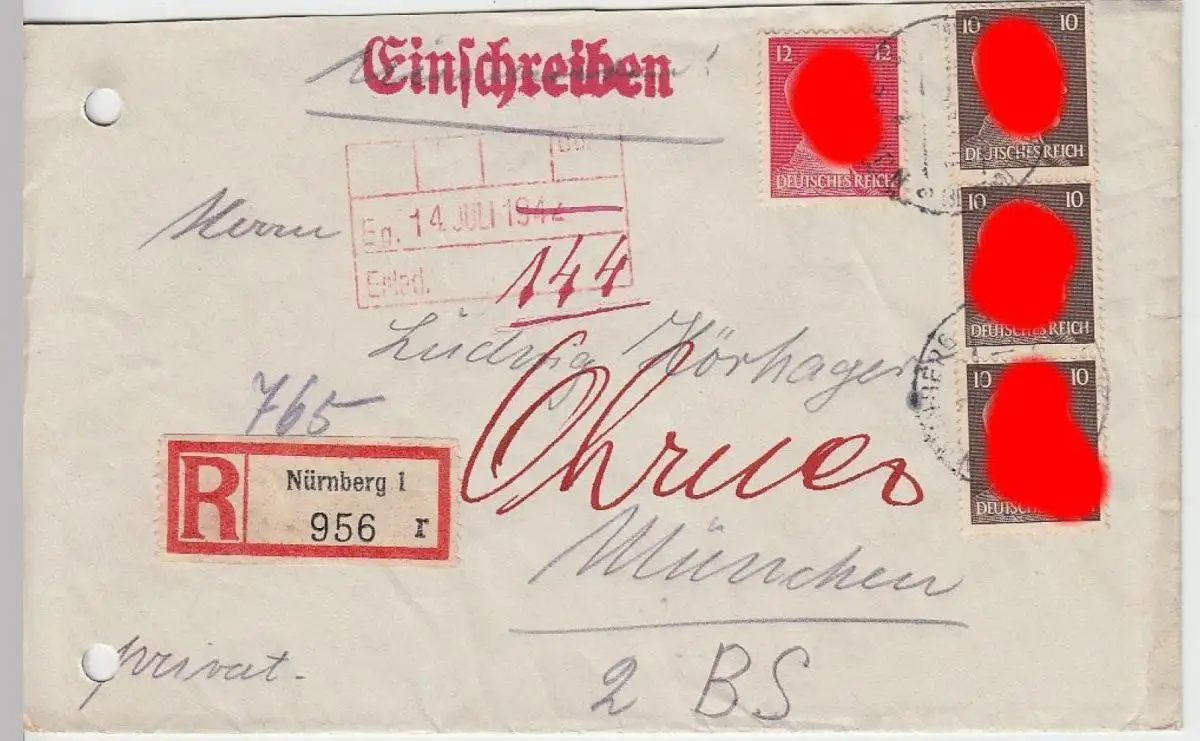 Einschreiben
12 12
DEUTSCHES REICH
10 10
DEUTSCHES REICH
10 10
DEUTSCHES REICH
10 10
DEUTSCHES
Herrn
Eg. 14. JULI 194
Erled.
144
Ludwig Hörhager
765
R
Nürnberg 1
956 r
München
privat.
2 BS